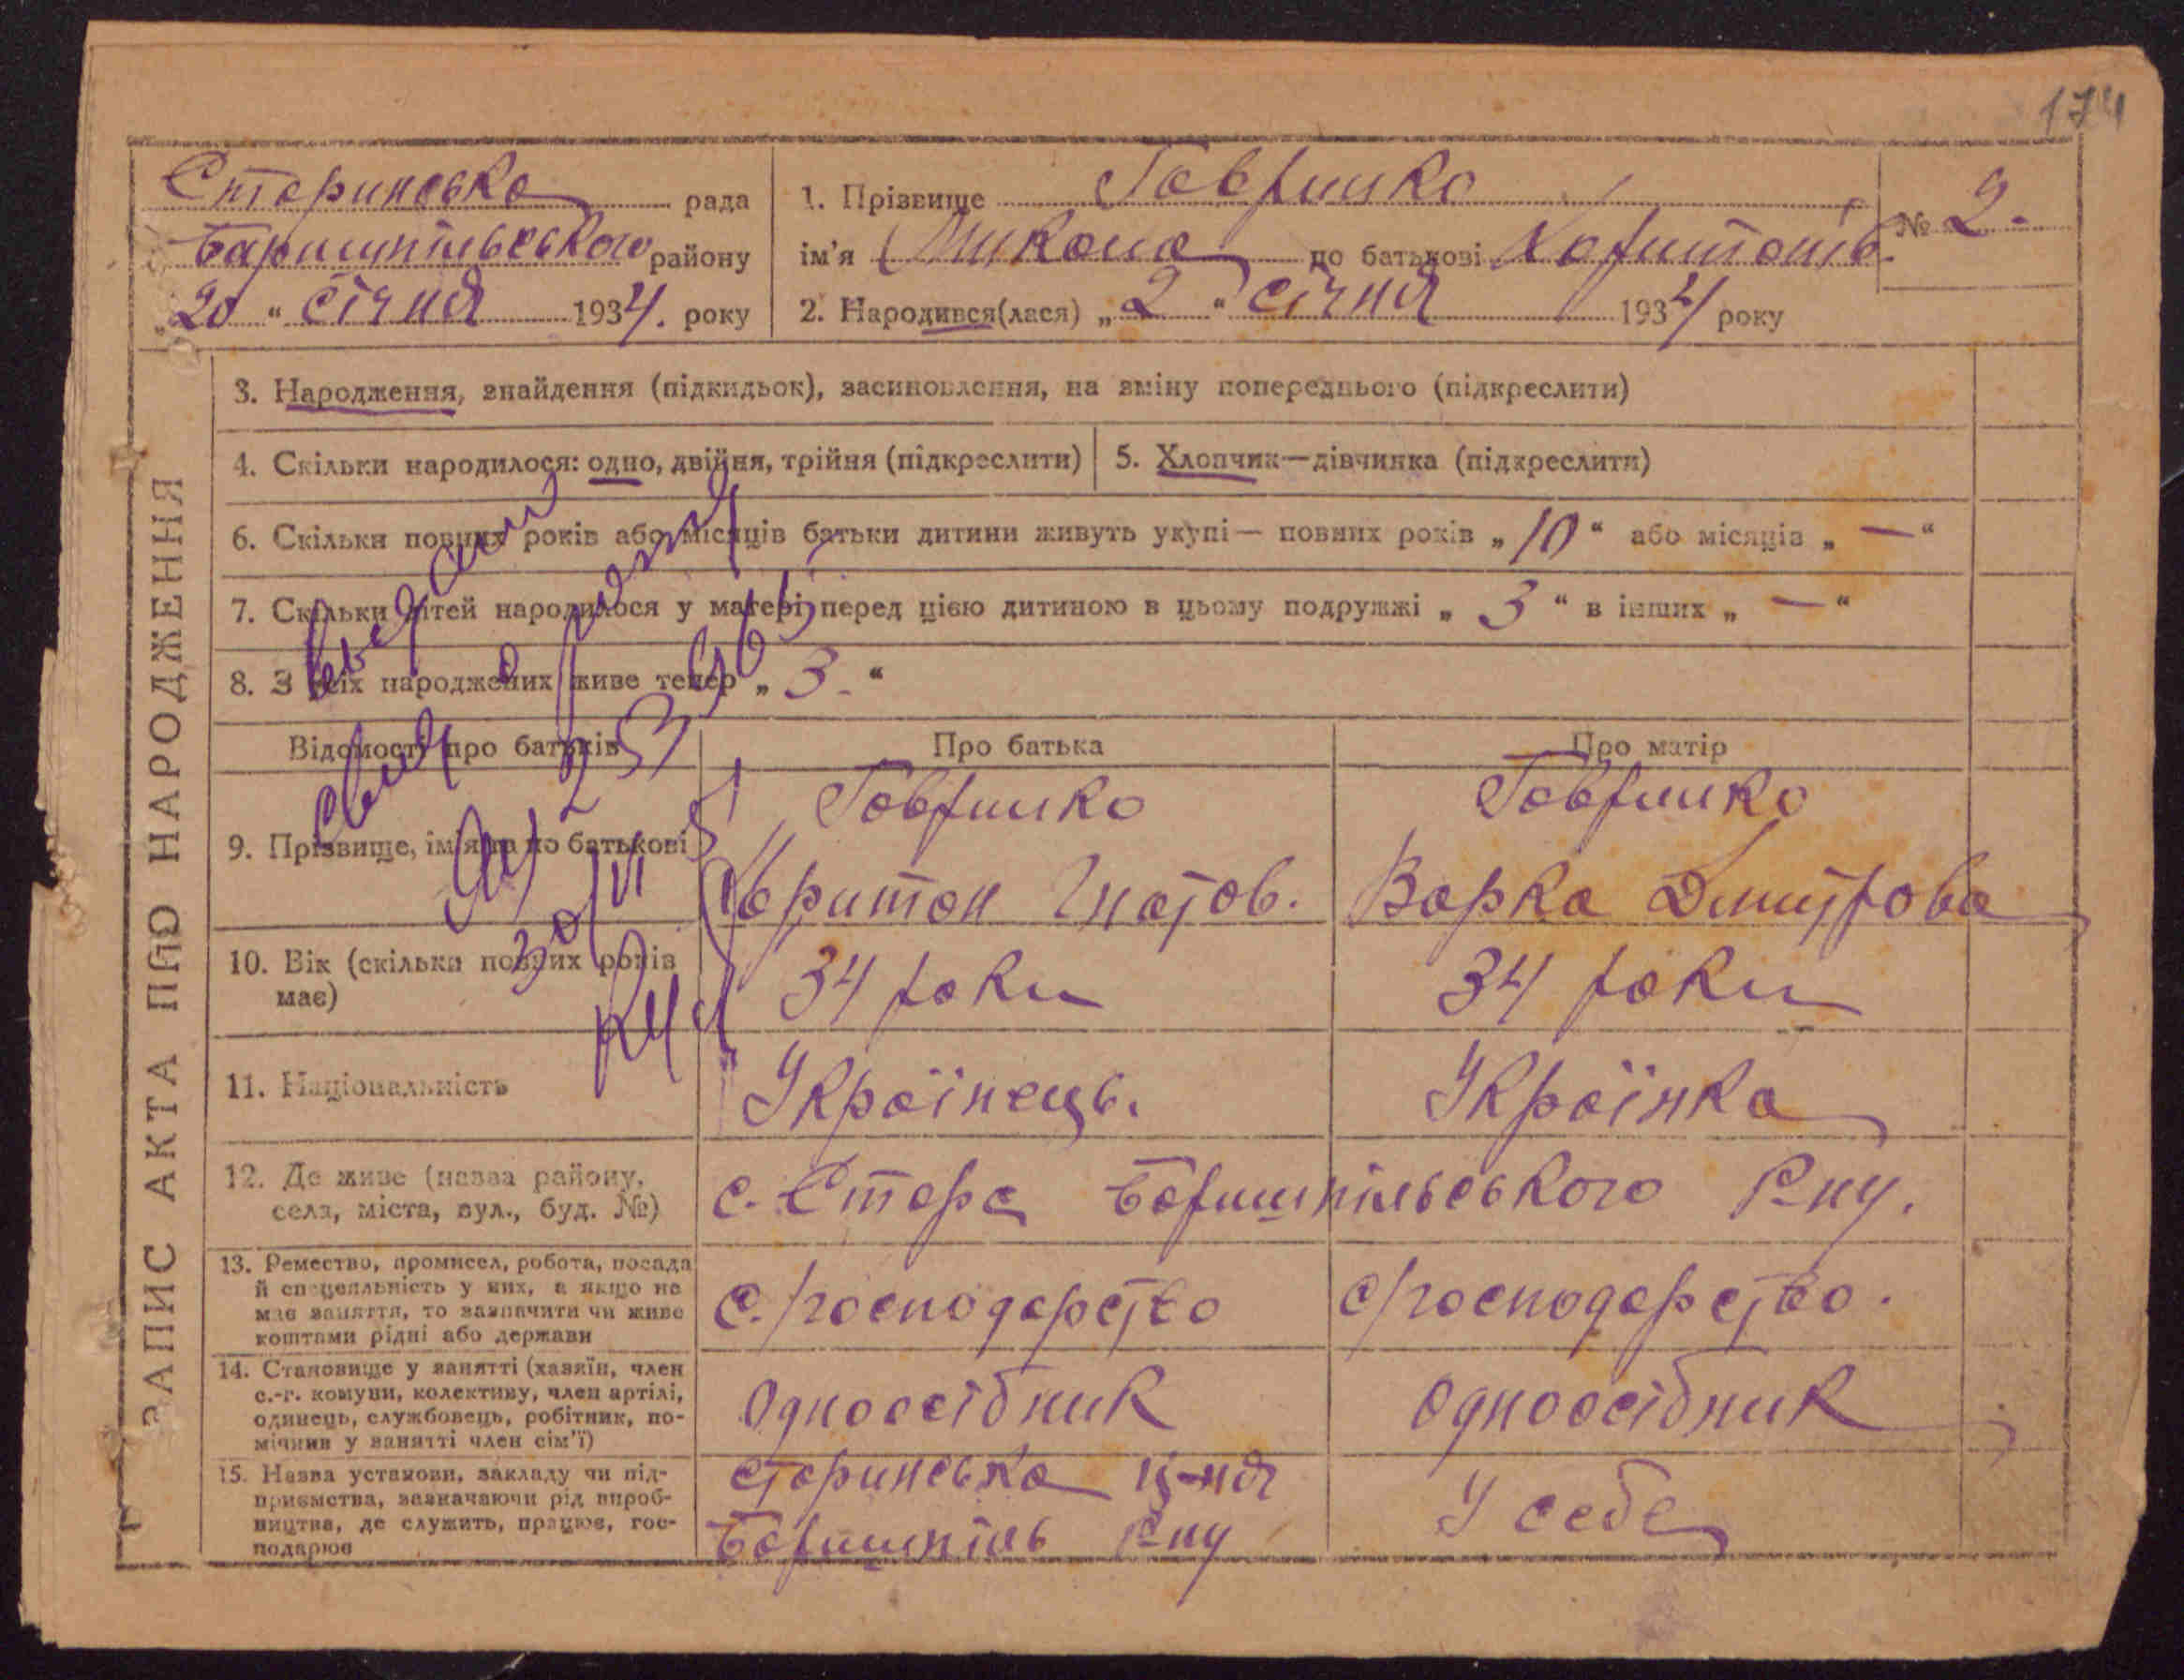 174
Старинська рада
Баришпільського району
„20“ січня 1934. року
1. Прізвище Гавришко
ім'я Микола по батькові Харитонів.
2. Народився(лася) „2“ січня 1934 року
№ 2.
ЗАПИС АКТА ПРО НАРОДЖЕННЯ
3. Народження, знайдення (підкидьок), засиновлення, на зміну попереднього (підкреслити)
4. Скільки народилося: одно, двійня, трійня (підкреслити)
5. Хлопчик—дівчинка (підкреслити)
6. Скільки повних років або місяців батьки дитини живуть укупі— повних років „10“ або місяців „—“
7. Скільки дітей народилося у матері перед цією дитиною в цьому подружжі „3“ в інших „—“
8. З всіх народжених живе тепер „3.“
Відомості про батьків
Про батька
Про матір
9. Прізвище, ім'я та по батькові
Гавришко
Харитон Гнатов.
Гавришко
Варка Дмитрова
10. Вік (скільки повних років
має)
34 роки
34 роки
11. Національність
Українець.
Українка
12. Де живе (назва району,
села, міста, вул., буд. №)
с. Стара Баришпільського Р-ну.
13. Ремество, промисел, робота, посада
й спецеяльність у них, а якщо не
має заняття, то зазначити чи живе
коштами рідні або держави
с/господарство
с/господарство.
14. Становище у занятті (хазяїн, член
с.-г. комуни, колективу, член артілі,
одинець, службовець, робітник, по-
мічник у занятті член сім'ї)
Одноосібник
Одноосібник
15. Назва установи, закладу чи під-
приємства, зазначаючи рід вироб-
ництва, де служить, працює, гос-
подарює
Старинська
Баришпіль Р-ну
У себе